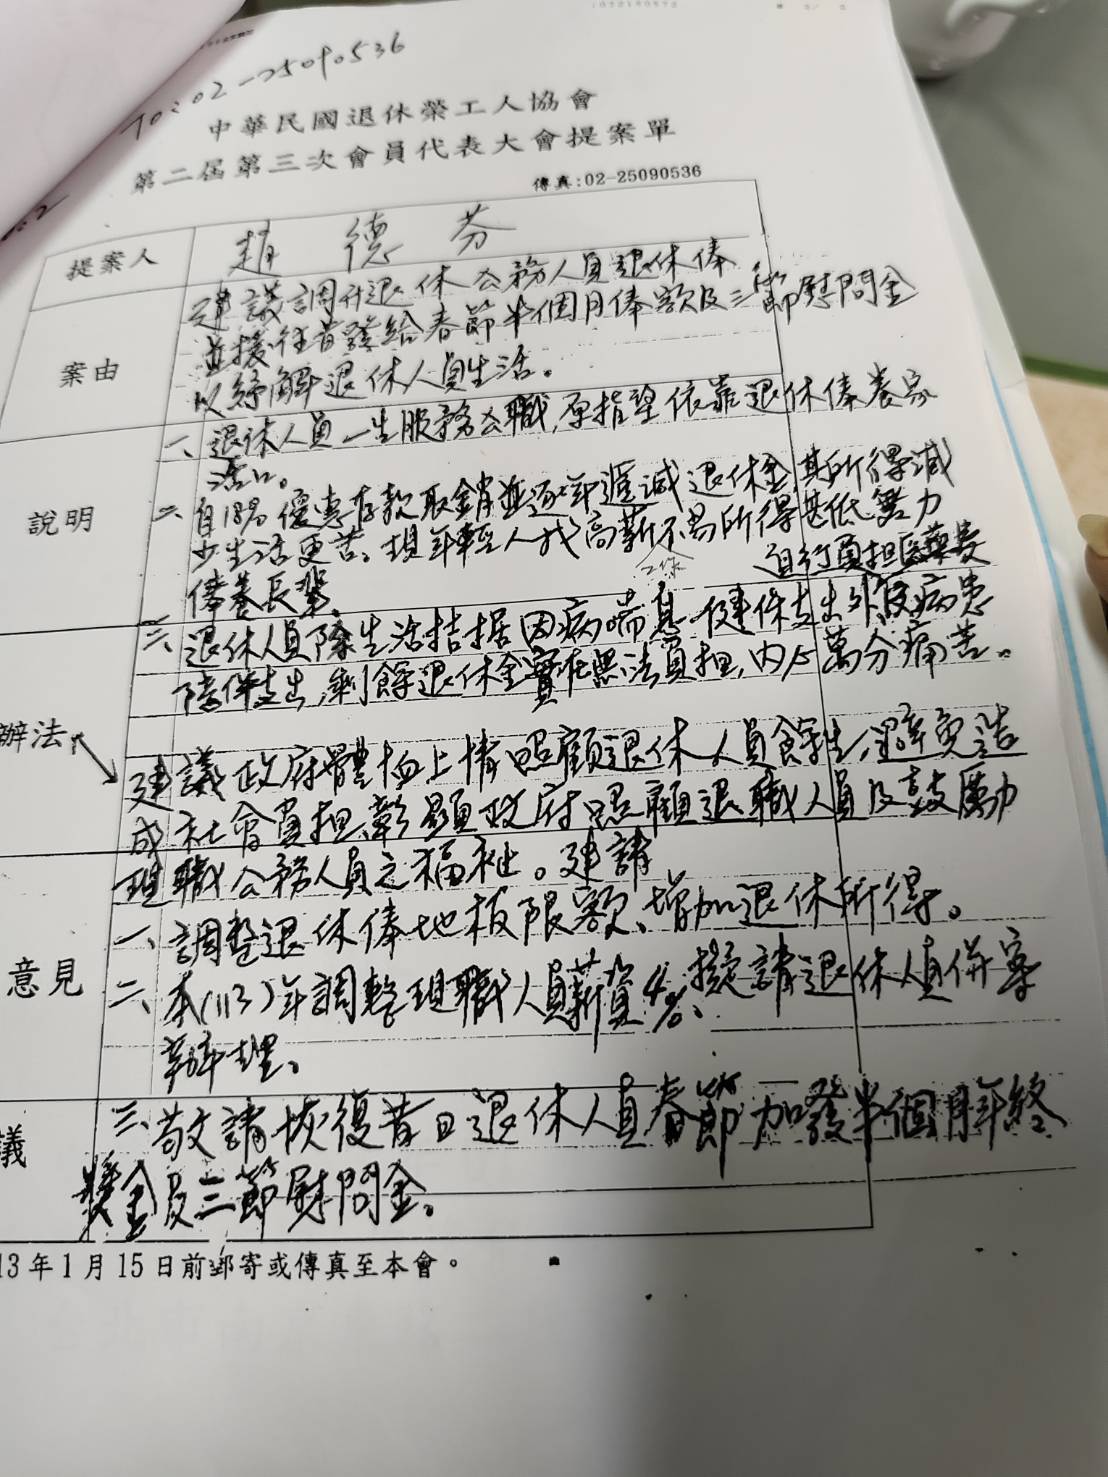 TO:02-25090536
中華民國退休榮工人協會
第二屆第三次會員代表大會提案單
傳真:02-25090536
提案人
趙德芬
案由
建議調升退休公務人員退休俸
並援往昔發給春節半個月俸額及三節慰問金
以紓解退休人員生活。
說明
一、退休人員一生服務公職,原指望依靠退休俸養家
活口。
二、自18%優惠存款取銷並逐年遞減退休金,其所得減
少生活更苦。現年輕人找高薪不易所得甚低無力
工作
俸養長輩。
自行負担醫藥費
三、退休人員除生活拮据因病喘息,健保支出外,及病患
陪伴支出,剩餘退休金實在無法負担,內心萬分痛苦。
辦法
建議政府體恤上情照顧退休人員餘生,避免造
成社會負担,彰顯政府照顧退職人員及鼓勵
現職公務人員之福祉。建請
意見
一、調整退休俸地板限額、增加退休所得。
二、本(113)年調整現職人員薪資4%、擬請退休人員併案
辦理。
三、敬請恢復昔日退休人員春節加發半個月年終
議
獎金及三節慰問金。
13年1月15日前郵寄或傳真至本會。